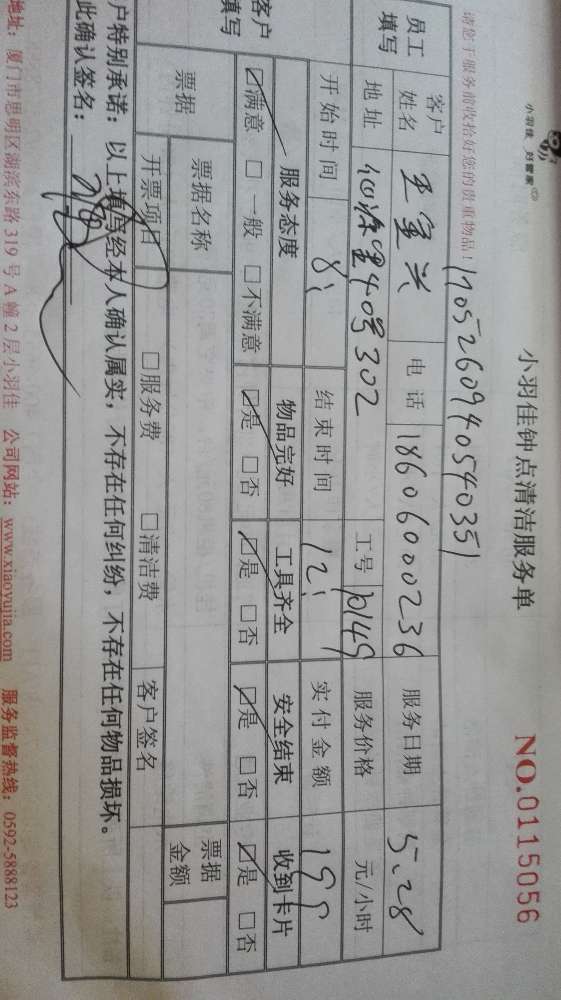 小羽佳 好管家
小羽佳钟点清洁服务单 NO.0115056
请您于服务前收拾好您的贵重物品! 1705260940540351
员工填写 客户姓名 王宝兴 电话 18606000236 服务日期 5.28
地址 40号302 工号 服务价格 元/小时
开始时间 8: 结束时间 12: 实付金额 199
客户填写 服务态度 物品完好 工具齐全 安全结束 收到卡片
☑满意 □一般 □不满意 ☑是 □否 ☑是 □否 ☑是 □否 ☑是 □否
票据 票据名称 票据金额
开票项目 □服务费 □清洁费 客户签名
户特别承诺：以上填写经本人确认属实，不存在任何纠纷，不存在任何物品损坏。
此确认签名：
地址：厦门市思明区湖滨东路319号A幢2层小羽佳 公司网站：www.xiaoyujia.com 服务监督热线：0592-5888123